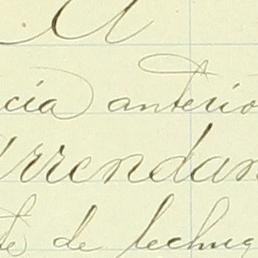 A
cia anterio
rrendan
te de lechug